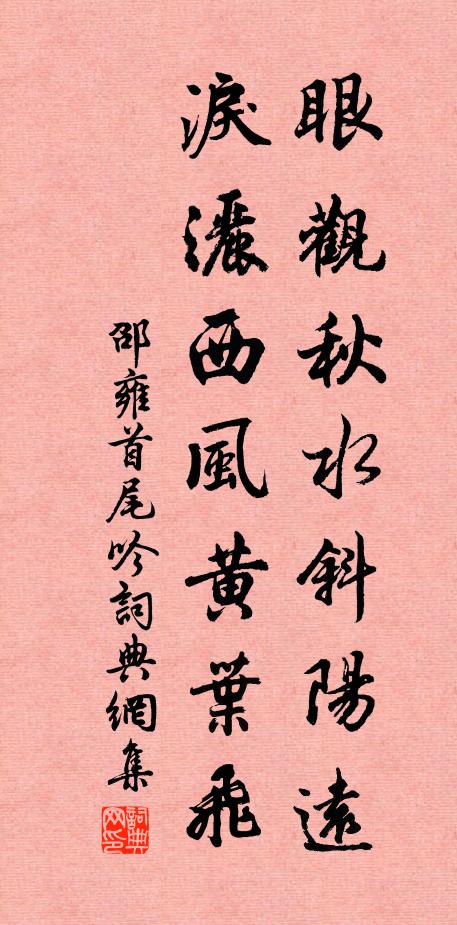 眼觀秋水斜陽遠
淚灑西風黃葉飛
邵雍首尾吟詞典網集
詞典网印